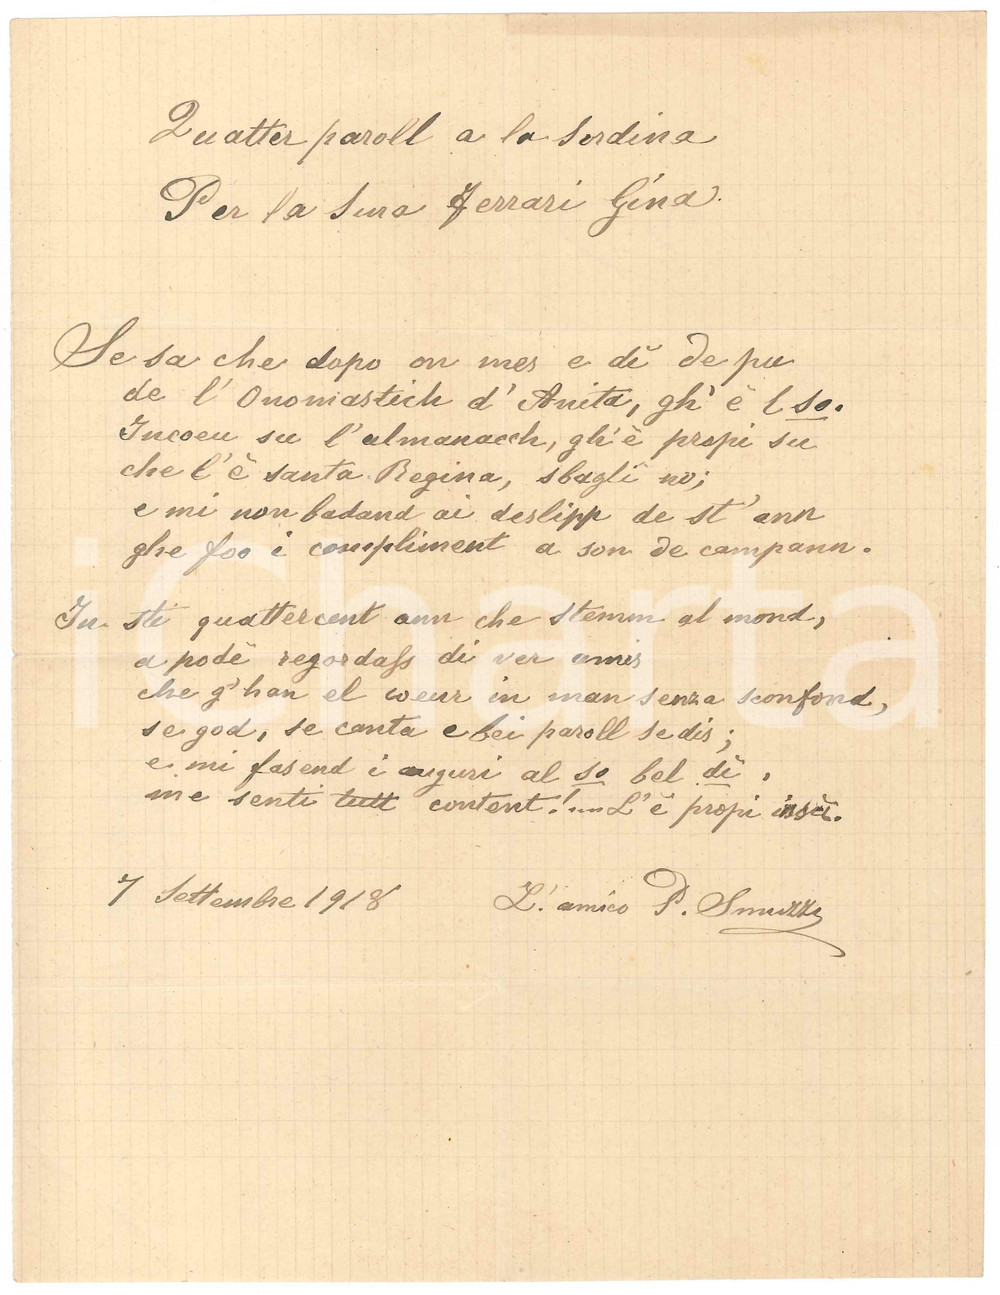 Quatter paroll a la Sordina
Per la Sura Ferrari Gina.
Se sa che dopo on mes e dì de pu
de l' Onomastich d' Anita, gh' è l so.
Incoeu su l' almanacch, gh'è propi su
che l'è santa Regina, sbagli no;
e mi non badand ai deslipp de st' ann
ghe foo i compliment a son de campann.
In sti quattercent ann che stemm al mond,
a podè regordass di ver amis
che g'han el coeur in man senza sconfond,
se god, se canta e bei paroll se dis;
e mi fasend i auguri al so bel dì,
me senti tutt content! L'è propi insci.
7 Settembre 1918
L'. amico P. Smuzzi
iCharta